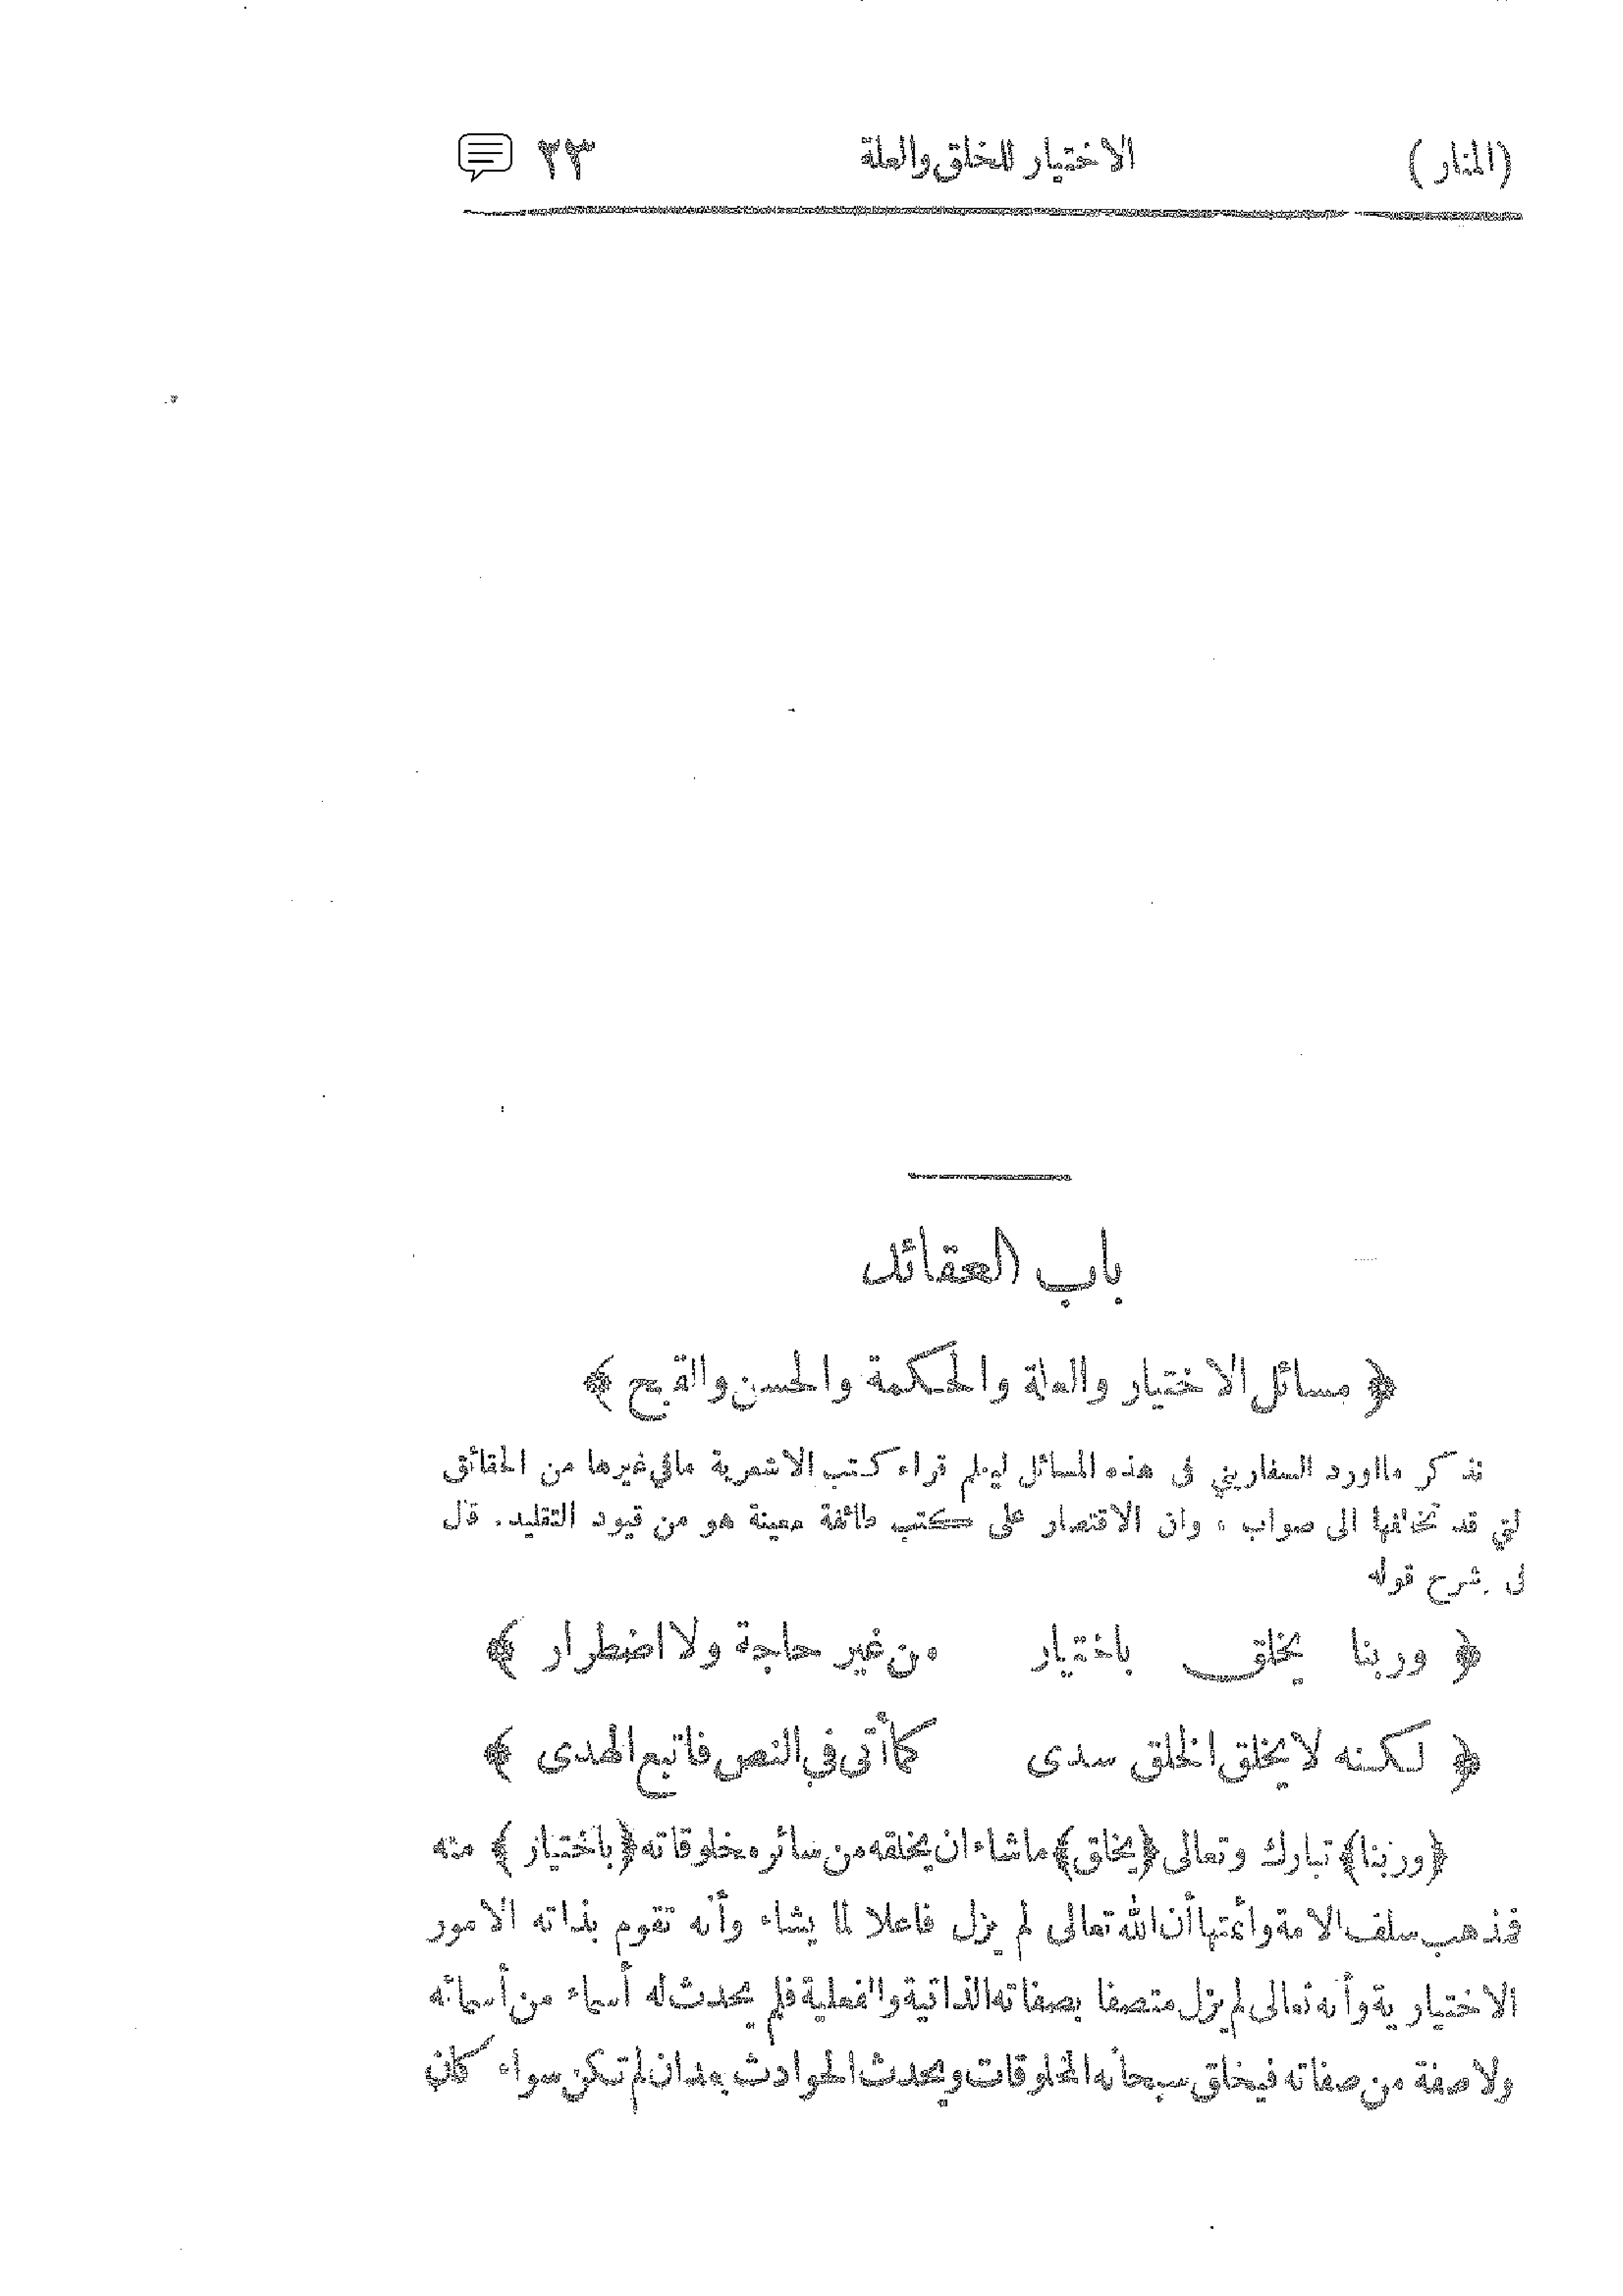 (المنار)	الاختيار للخلق والعلة	٢٣
باب العقائد
﴿ مسائل الاختيار والعلة والحكمة والحسن والقبح ﴾
نذكر ما اورد السفاريني فى هذه المسائل ليعلم قراء كتب الاشعرية ما في غيرها من الحقائق
لتي قد تخالفها الى صواب ، وان الاقتصار على كتب طائفة معينة هو من قيود التقليد . قال
فى شرح قوله
﴿ وربنا يخلق باختيار	من غير حاجة ولا اضطرار ﴾
﴿ لكنه لا يخلق الخلق سدى	كما أتى في النص فاتبع الهدى ﴾
﴿وربنا﴾ تبارك وتعالى ﴿يخلق﴾ ما شاء ان يخلقه من سائر مخلوقاته ﴿باختيار﴾ منه
فمذهب سلف الامة وأئمتها أن الله تعالى لم يزل فاعلا لما يشاء وأنه تقوم بذاته الامور
الاختيارية وأنه تعالى لم يزل متصفا بصفاته الذاتية والفعلية فلم يحدث له أسماء من أسمائه
ولا صفة من صفاته فيخلق سبحانه المخلوقات ويحدث الحوادث بعد ان لم تكن سواء كان